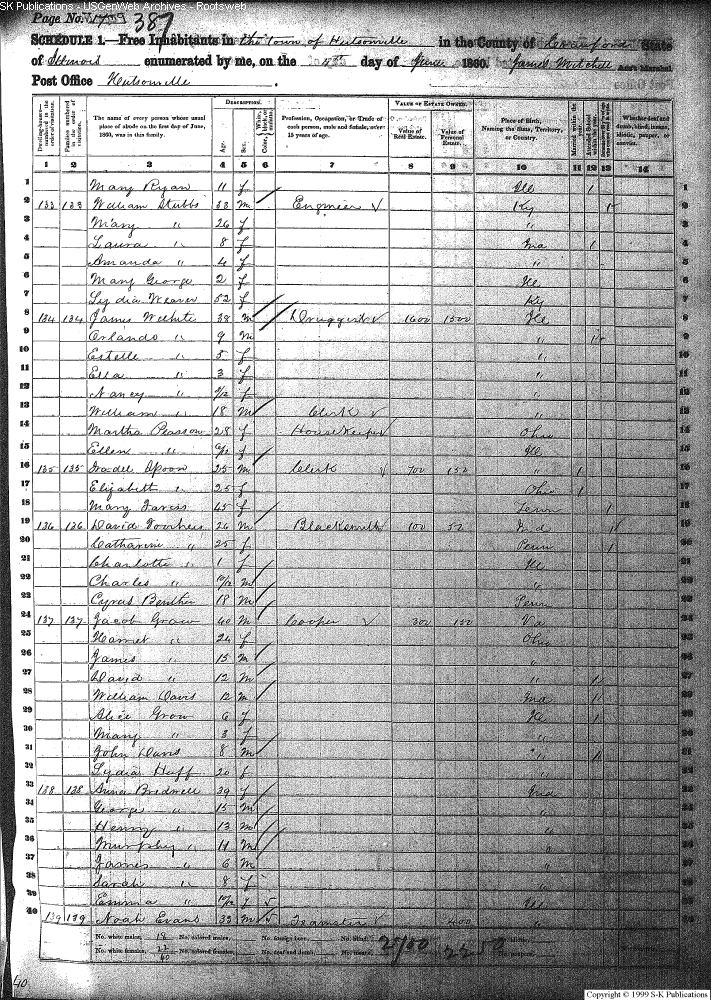 SK Publications - USGenWeb Archives - Rootsweb
Page No. 1759 387
SCHEDULE 1.—Free Inhabitants in the Town of Hutsonville in the County of Crawford State
of Illinois enumerated by me, on the day of June 1860. James Mitchell Ass't Marshal
Post Office Hutsonville
DESCRIPTION. VALUE OF ESTATE OWNED.
Dwelling-houses—numbered in the order of visitation. Families numbered in the order of visitation. The name of every person whose usual place of abode on the first day of June, 1860, was in this family. Age. Sex. Color, White, black, or mulatto. Profession, Occupation, or Trade of each person, male and female, over 15 years of age. Value of Real Estate. Value of Personal Estate. Place of Birth, Naming the State, Territory, or Country. Married within the year. Whether deaf and dumb, blind, insane, idiotic, pauper, or convict.
1 2 3 4 5 6 7 8 9 10 11 12 13 14
1 Mary Ryan 11 f Ill 1 1
2 133 133 William Stubbs 38 m Engineer Ky 2
3 Mary " 26 f " 3
4 Laura " 8 f Ina 1 4
5 Amanda " 4 f " 5
6 Mary George 2 f Ill 6
7 Lydia Weaver 52 f Ky 7
8 134 134 James Wilhite 38 m Druggist 1600 1500 Ill 8
9 Orlando " 9 m " 9
10 Estelle " 5 f " 10
11 Ella " 3 f " 11
12 Nancy " f " 12
13 William " 18 m Clerk " 13
14 Martha Pearson 28 f Housekeeper Ohio 14
15 Ellen " f Ill 15
16 135 135 Spoon 25 m Clerk 700 150 " 1 16
17 Elizabeth " 25 f Ohio 1 17
18 Mary 45 f Tenn 1 18
19 136 136 David Voorhees 26 m Blacksmith 100 50 Ind 19
20 Catharine " 25 f Penn 1 20
21 Charlotte " 1 f Ill 21
22 Charles " m " 22
23 Cyrus 18 m Penn 23
24 137 137 Jacob Grow 40 m Cooper 300 100 Va 24
25 Harriet " 24 f Ohio 25
26 James " 15 m " 26
27 David " 12 m " 1 27
28 William Davis 12 m Ina 1 28
29 Alice Grow 6 f Ill 1 29
30 Mary " 3 f " 30
31 John Davis 8 m " 1 31
32 Lydia Huff 20 f " 32
33 138 138 Anna Bridwell 39 f Ind 33
34 George " 15 m " 34
35 Henry " 13 m " 35
36 Murphy " 11 m " 36
37 James " 6 m " 37
38 Sarah " 8 f " 38
39 Emma " f Ill 39
40 139 139 Noah Evans 33 m Teamster 400 " 40
No. white males, 18 No. colored males, No. foreign born, No. blind, 2700 2250
No. white females, 22 No. colored females, No. deaf and dumb, No. insane,
40
40
Copyright © 1999 S-K Publications